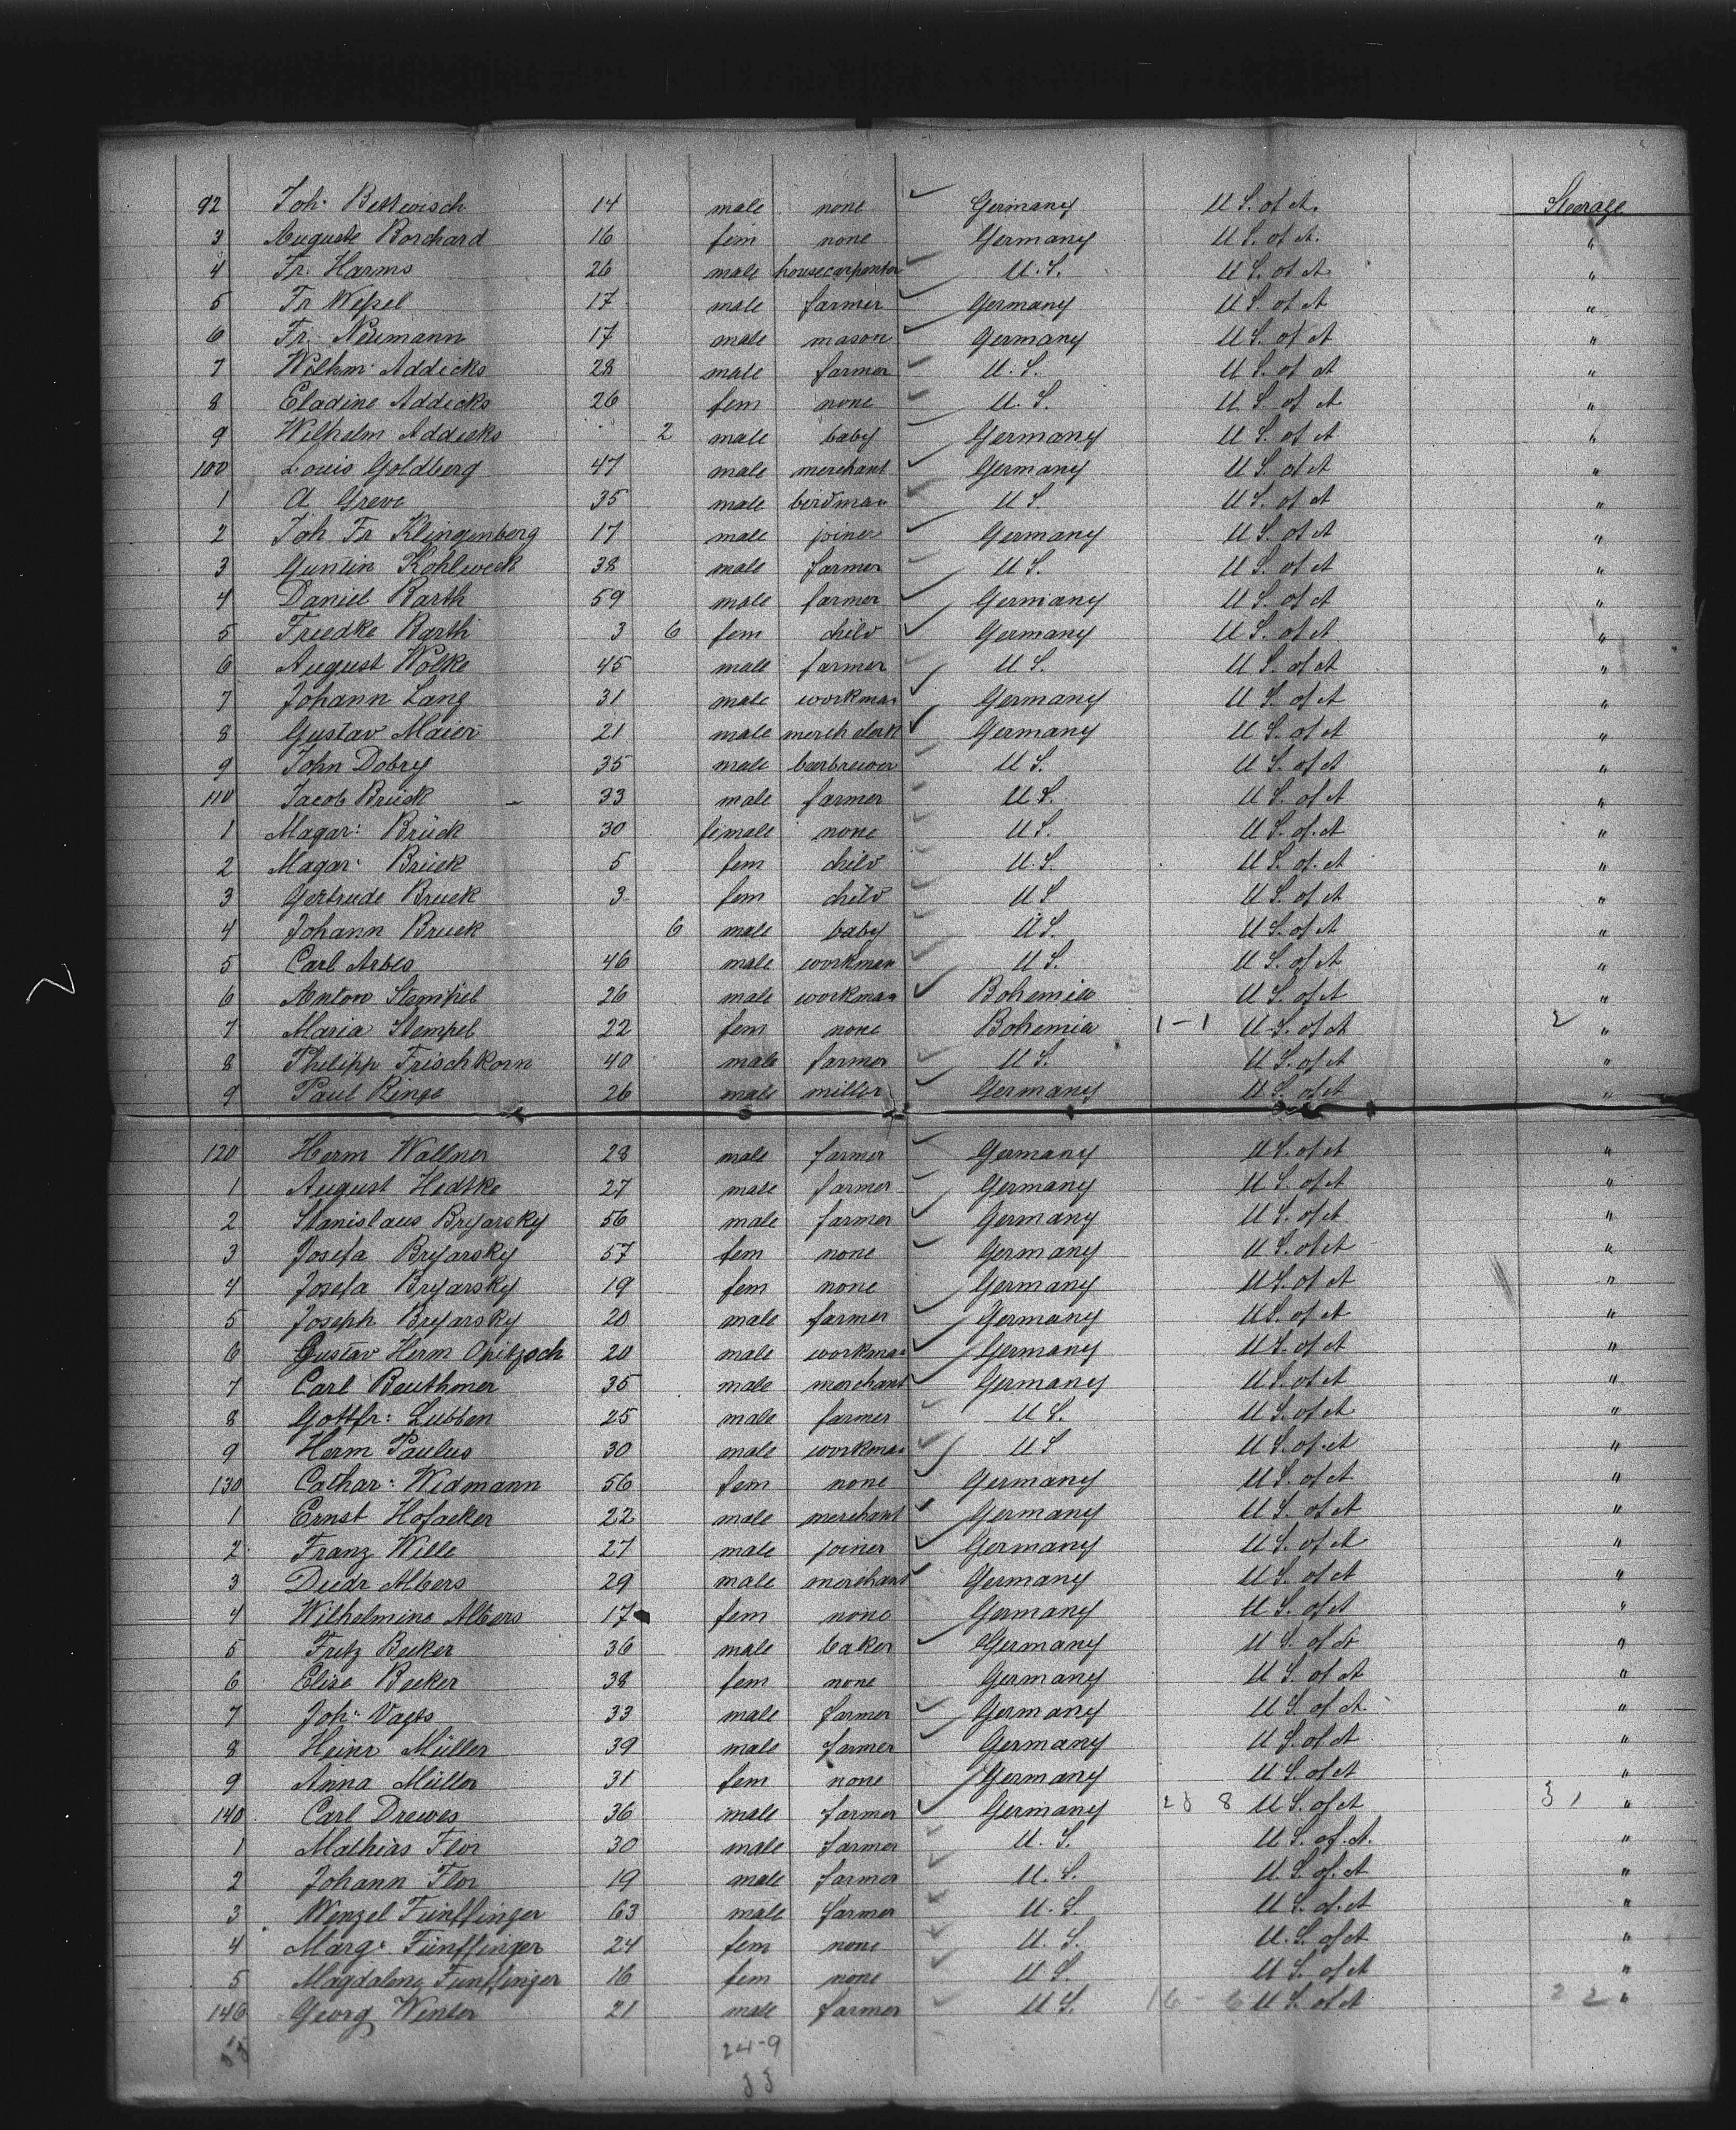 92 Joh. Bettewisch 14 male none Germany U S. of A. Steerage
3 Auguste Borchard 16 fem none Germany U S. of A. "
4 Fr. Harms 26 male housecarpenter U. S. U S. of A "
5 Fr Wessel 17 male farmer Germany U S. of A "
6 Fr. Neumann 17 male mason Germany U S. of A "
7 Wilhm. Addicks 28 male farmer U. S. U S. of A "
8 Eladine Addicks 26 fem none U. S. U. S. of A "
9 Wilhelm Addicks 2 male baby Germany U S. of A "
100 Louis Goldberg 47 male merchant Germany U S. of A "
1 A Greve 35 male birdman U S. U S. of A "
2 Joh Fr Klingenberg 17 male joiner Germany U S. of A "
3 Kohlweck 38 male farmer U S. U S. of A "
4 Daniel Barth 59 male farmer Germany U S. of A "
5 Friedke Barth 3 6 fem child Germany U S. of A "
6 August Wolke 45 male farmer U S. U S. of A "
7 Johann Lang 31 male workman Germany U S. of A "
8 Gustav Maier 21 male merch clerk Germany U S. of A "
9 John Dobry 35 male beerbrewer U S. U S. of A "
110 Jacob Brück 33 male farmer U S. U S. of A "
1 Magar: Brück 30 female none U S. U S. of. A "
2 Magar. Brück 5 fem child U. S. U S. of. A "
3 Gertrude Bruck 3 fem child U S U S. of A "
4 Johann Bruck 6 male baby U S. U S. of A "
5 Carl Arbes 46 male workman U S. U S. of A "
6 Anton Stempel 26 male workman Bohemia U S. of A "
7 Maria Stempel 22 fem none Bohemia 1-1 U S. of A 2 "
8 Philipp Frischkorn 40 male farmer U S. U S. of A "
9 Paul Ringe 26 male miller Germany U S. of A "
120 Herm Wallner 28 male farmer Germany U S. of A "
1 August Hedtke 27 male farmer Germany U S. of A "
2 Stanislaus Bryarsky 56 male farmer Germany U S. of A "
3 Josefa Bryarsky 57 fem none Germany U S. of A "
4 Josefa Bryarsky 19 fem none Germany U S. of A "
5 Joseph Bryarsky 20 male farmer Germany U S. of A "
6 Gustav Herm Opitzsch 20 male workman Germany U S. of A "
7 Carl Beuthner 35 male merchant Germany U S. of A "
8 Gottfr: Lubben 25 male farmer U S. U S. of A "
9 Herm Paulus 30 male workman U S U S. of. A "
130 Cathar: Widmann 56 fem none Germany U S. of A "
1 Ernst Hofacker 22 male merchant Germany U S. of A "
2 Franz Wille 27 male joiner Germany U S. of A "
3 Diedr Albers 29 male merchant Germany U S. of A "
4 Wilhelmine Albers 17 fem none Germany U S. of A "
5 Fritz Becker 36 male baker Germany U S. of A "
6 Elise Becker 38 fem none Germany U S. of A "
7 Joh: Vagts 33 male farmer Germany U S. of A. "
8 Heinr Müller 39 male farmer Germany U S. of A "
9 Anna Müller 31 fem none Germany U S. of A "
140 Carl Drewes 36 male farmer Germany 23 8 U S. of A 31 "
1 Mathias Flor 30 male farmer U. S. U S. of. A. "
2 Johann Flor 19 male farmer U. S. U. S. of. A "
3 Wenzel Fünffinger 63 male farmer U. S. U S. of. A "
4 Marg. Fünffinger 24 fem none U. S. U. S. of A "
5 Magdalene Fünffinger 16 fem none U S. U S. of A "
146 Georg Winter 21 male farmer U S. 16-6 U S. of A 22 "
55 24-9
33